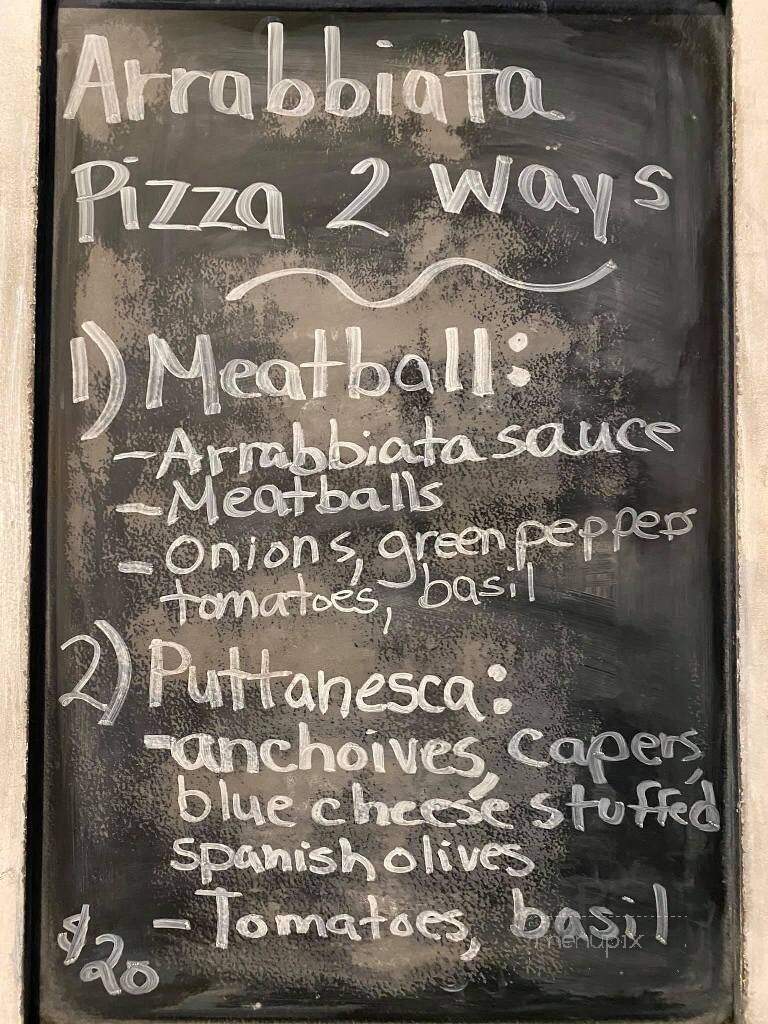 Arrabbiata
Pizza 2 ways
1) Meatball:
- Arrabbiata sauce
- Meatballs
- Onions, green peppers
tomatoes, basil
2) Puttanesca:
- anchoives, capers,
blue cheese stuffed
spanish olives
- Tomatoes, basil
$20
menupix